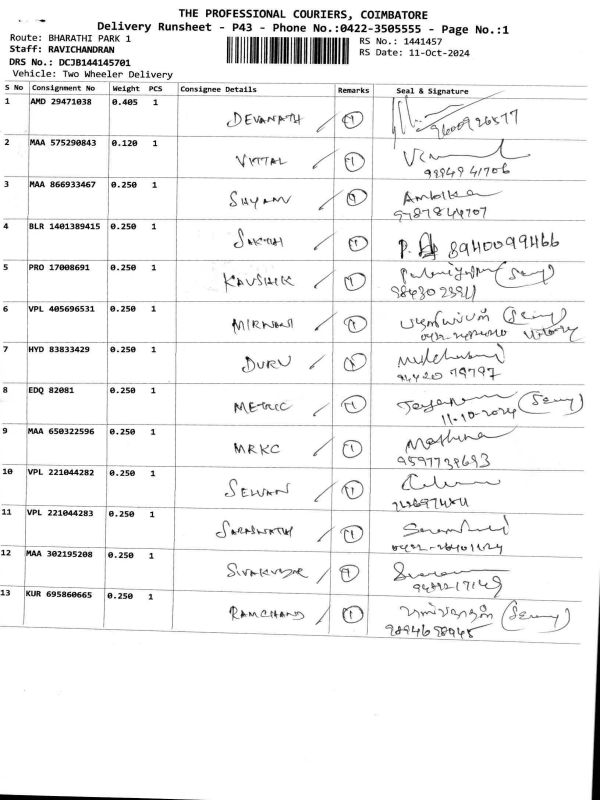 THE PROFESSIONAL COURIERS, COIMBATORE
Delivery Runsheet - P43 - Phone No.:0422-3505555 - Page No.:1
Route: BHARATHI PARK 1
RS No.: 1441457
Staff: RAVICHANDRAN
RS Date: 11-Oct-2024
DRS No.: DCJB144145701
Vehicle: Two Wheeler Delivery
S No Consignment No Weight PCS Consignee Details Remarks Seal & Signature
1 AMD 29471038 0.405 1 DEVANATH 1
9600926577
2 MAA 575290843 0.120 1 VITTAL 1
98949 41706
3 MAA 866933467 0.250 1 SHYAM 1 Ambika
9787844707
4 BLR 1401389415 0.250 1 SAKTHI 1 8940099466
5 PRO 17008691 0.250 1 KAUSHIK 1
6 VPL 405696531 0.250 1 MIRWANI 1
7 HYD 83833429 0.250 1 DURU 1
8 EDQ 82081 0.250 1 METRIC 1
11-10-2024
9 MAA 650322596 0.250 1 MRKC 1
9597739693
10 VPL 221044282 0.250 1 SELVAN 1
11 VPL 221044283 0.250 1 SARASWATHI 1
12 MAA 302195208 0.250 1 1
13 KUR 695860665 0.250 1 RAMCHAND 1
9894658945